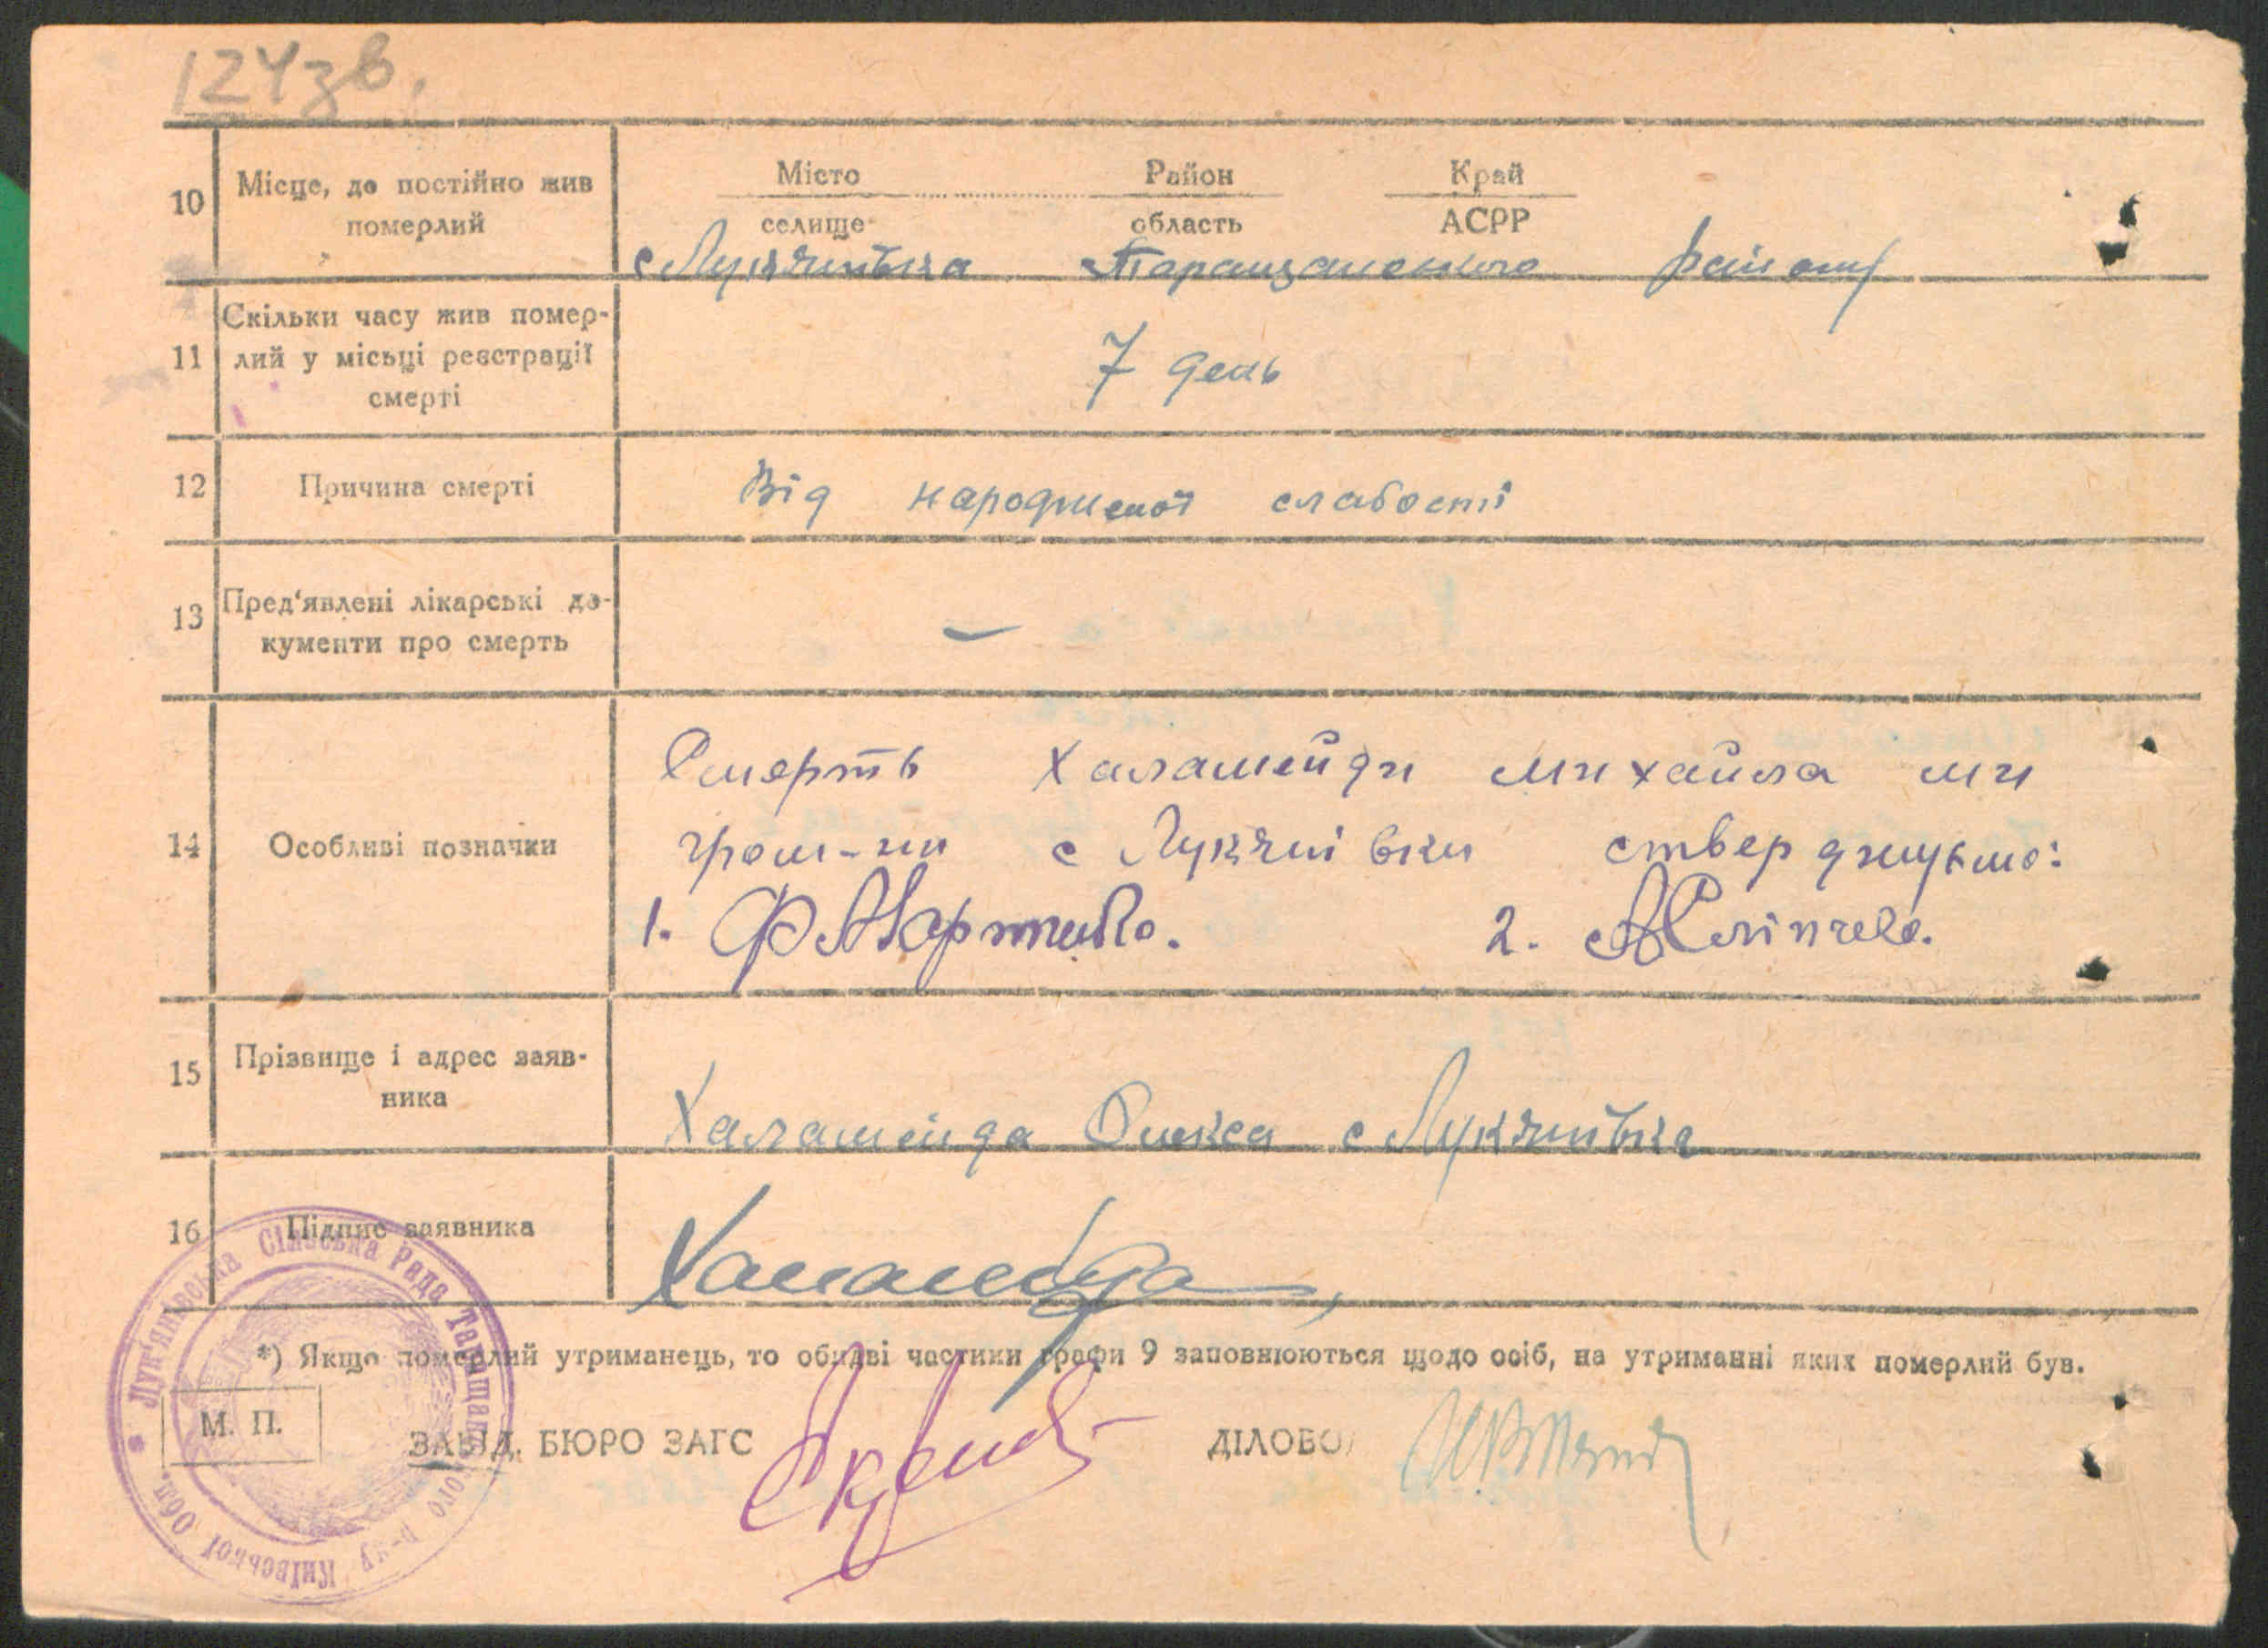 124зв.
10
Місце, де постійно жив
померлий
Місто Район Край
селище область АСРР
с Лукянівка Таращанського району
11
Скільки часу жив помер-
лий у місьці реєстрації
смерті
7 день
12
Причина смерті
Від народженої слабості
13
Пред'явлені лікарські до-
кументи про смерть
—
14
Особливі позначки
Смерть Халамейди михайла ми
гром-ни с Лукянівки стверджуємо:
1. Ф
2. 
15
Прізвище і адрес заяв-
ника
Халамейда Олекса с Лукянівка
16
Підпис заявника
Халамейда
*) Якщо померлий утриманець, то обидві частини графи 9 заповнюються щодо осіб, на утриманні яких померлий був.
М. П.
ЗАВІД. БЮРО ЗАГС
ДІЛОВОД
Лук'янівська Сільська Рада Таращанського р-ну Київської Обл.